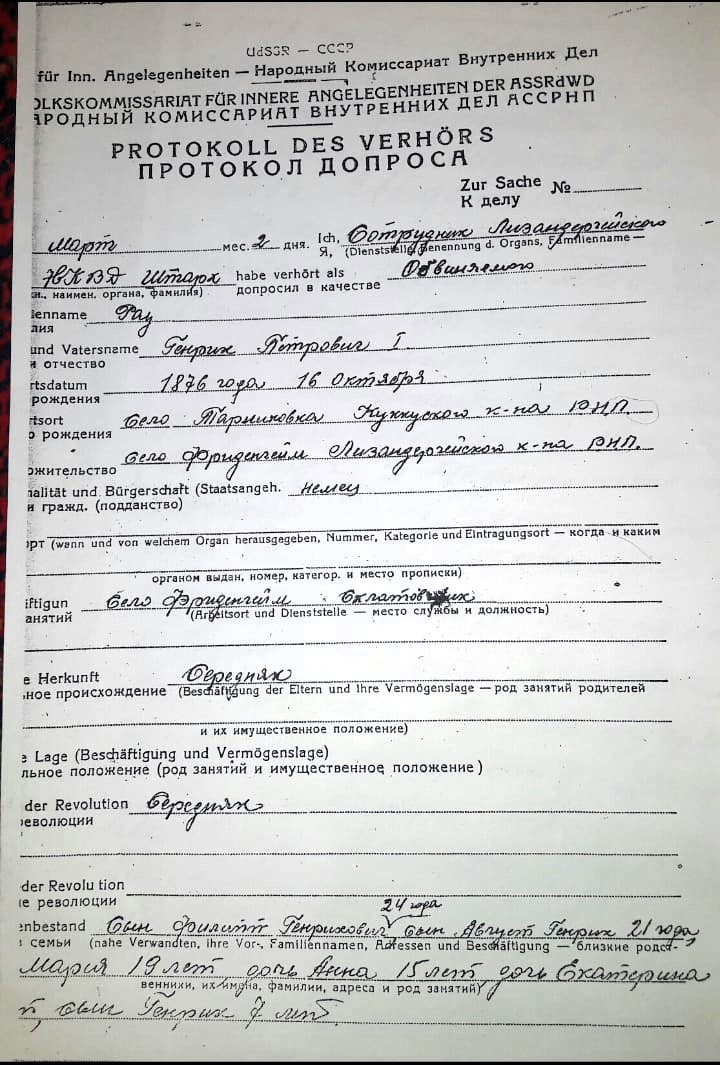 UdSSR — СССР
für Inn. Angelegenheiten — Народный Комиссариат Внутренних Дел
OLKSKOMMISSARIAT FÜR INNERE ANGELEGENHEITEN DER ASSRdWD
АРОДНЫЙ КОМИССАРИАТ ВНУТРЕННИХ ДЕЛ АССРНП
PROTOKOLL DES VERHÖRS
ПРОТОКОЛ ДОПРОСА
Zur Sache №
К делу
Март мес. 2 дня. Ich, Сотрудник Лизандергейского
Я, (Dienststelle, Benennung d. Organs, Familienname —
НКВД Штарх habe verhört als Обвиняемого
наимен. органа, фамилия) допросил в качестве
ienname Рау
лия
und Vatersname Генрих Петрович I
и отчество
rtsdatum 1876 года 16 Октября
рождения
rtsort Село Тарликовка Куккуского к-на РНП.
о рождения
Село Фриденгейм Лизандергейского к-на РНП.
ожительство
nalität und Bürgerschaft (Staatsangeh. немец
и гражд. (подданство)
орт (wann und von welchem Organ herausgegeben, Nummer, Kategorie und Eintragungsort — когда и каким
органом выдан, номер, категор. и место прописки)
äftigun Село Фриденгейм
анятий (Arbeitsort und Dienststelle — место службы и должность)
e Herkunft Середняк
ьное происхождение (Beschäftigung der Eltern und Ihre Vermögenslage — род занятий родителей
и их имущественное положение)
e Lage (Beschäftigung und Vermögenslage)
льное положение (род занятий и имущественное положение)
der Revolution Середняк
революции
der Revolution
ле революции
24 года
enbestand Сын Филипп Генрихович сын Август Генрих 21 года
в семьи (nahe Verwandten, ihre Vor-, Familiennamen, Adressen und Beschäftigung — близкие родст-
Мария 19 лет, дочь Анна 15 лет дочь Екатерина
венники, их имена, фамилии, адреса и род занятий)
т, сын Генрих 7 лет.